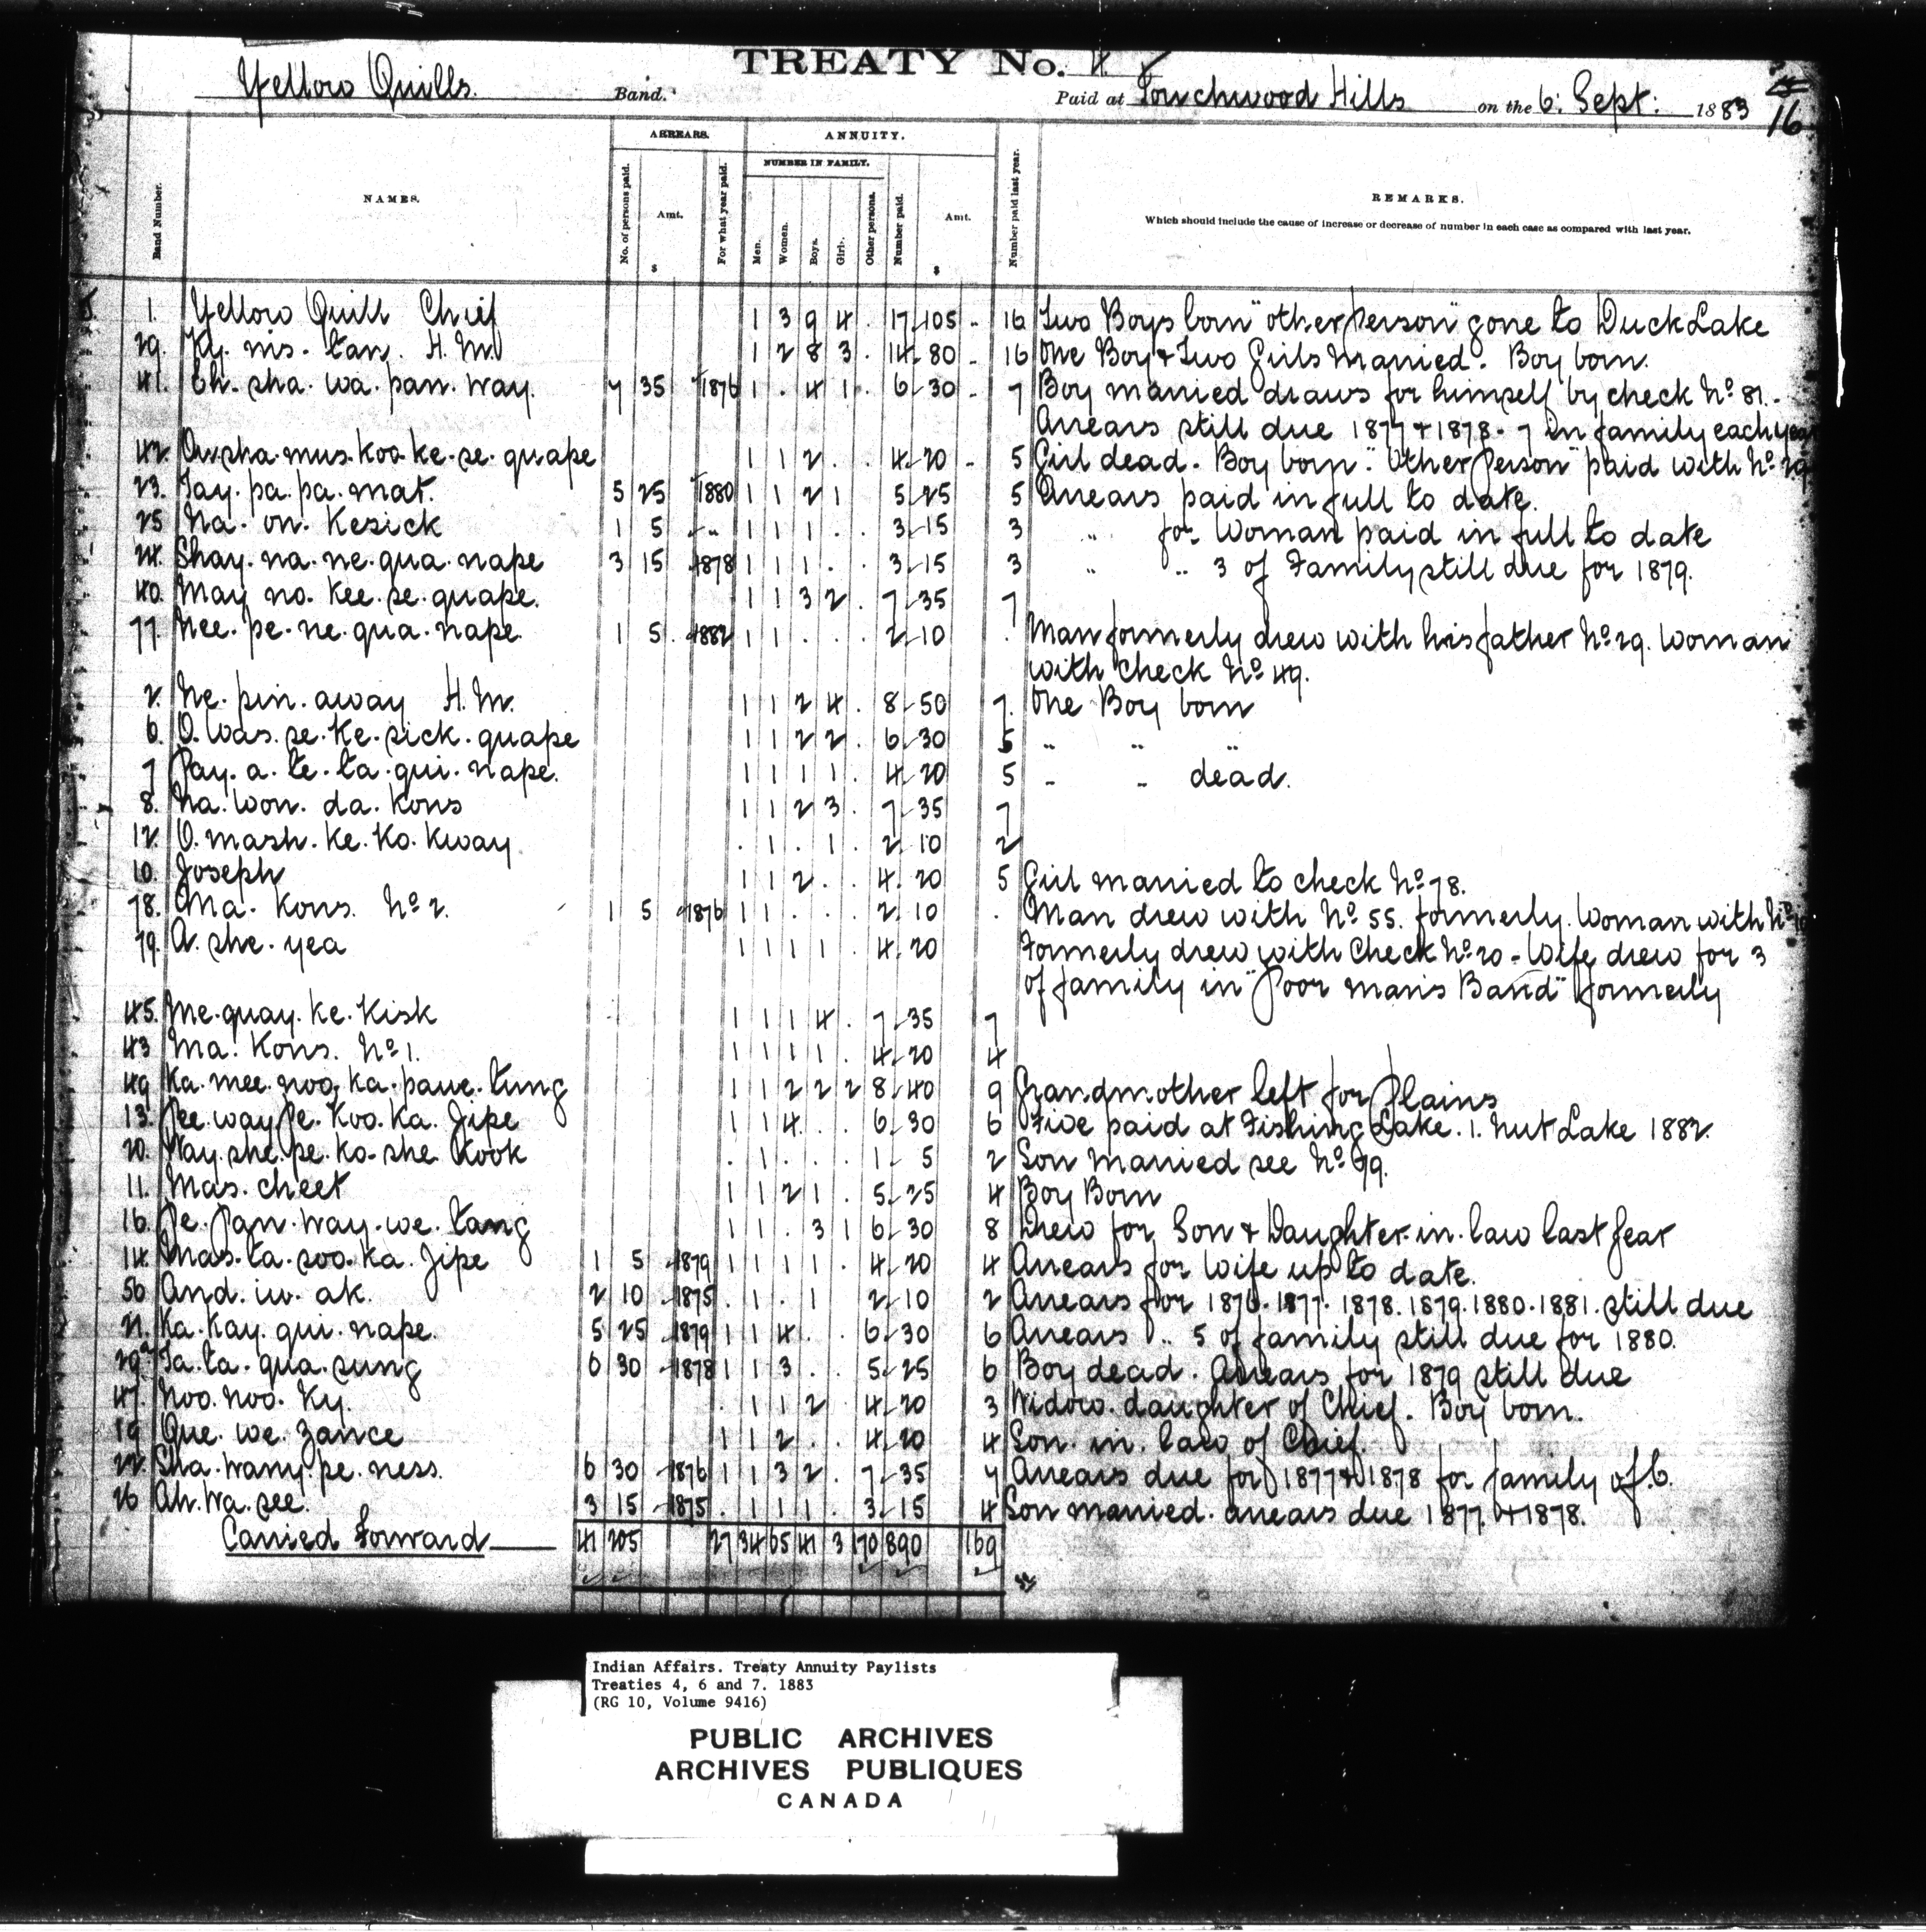 TREATY No. 4
Yellow Quills Band. Paid at Touchwood Hills on the 6: Sept: 1883
16
Band Number. NAMES. ARREARS. No. of persons paid. Amt. $ For what year paid. ANNUITY. NUMBER IN FAMILY. Men. Women. Boys. Girls. Other persons. Number paid. Amt. $ Number paid last year. REMARKS.
Which should include the cause of increase or decrease of number in each case as compared with last year.
1. Yellow Quill Chief 1 3 9 4 . 17 105 - 16 Two Boys born "other Person" gone to Duck Lake
29. Ky. nis. tan. H.M. 1 2 8 3 . 14 80 - 16 One Boy & Two Girls Married. Boy born.
41. Eh. sha. wa. pan. way. 7 35 1876 1 . 4 1 . 6 30 - 7 Boy married draws for himself by check No 81. -
Arrears still due 1877 & 1878 - 7 in family each year
42. Ow. sha. mus. koo. ke. se. quape 1 1 2 . . 4 20 - 5 Girl dead. Boy born. "Other Person" paid with No 29
23. Tay. pa. pa. mat. 5 25 1880 1 1 2 1 5 25 5 Arrears paid in full to date.
25 Na. on. Kesick 1 5 " 1 1 1 . . 3 15 3 " for Woman paid in full to date
24. Shay. na. ne. qua. nape 3 15 1878 1 1 1 . . 3 15 3 " " 3 of Family still due for 1879.
40. May no. kee. se. quape. 1 1 3 2 . 7 35 7
77. Nee. pe. ne. qua. nape 1 5 1882 1 1 . . . 2 10 . Man formerly drew with his father No 29. Woman
with check No 49.
2. Ne. pin. away H.M. 1 1 2 4 . 8 50 7. One Boy born
6. O. was. se. ke. sick. quape 1 1 2 2 . 6 30 5 " " "
7 Pay. a. te. ta. qui. nape. 1 1 1 1 . 4 20 5 " " dead.
8. Na. won. da. kons 1 1 2 3 . 7 35 7
12. O. mash. ke. ko. kway . 1 . 1 . 2 10 2
10. Joseph 1 1 2 . . 4 20 5 Girl married to check No 78.
78. Ma. kons. No 2. 1 5 1876 1 1 . . . 2 10 . Man drew with No 55. formerly. Woman with No 10
79. A. she. yea 1 1 1 1 . 4 20 Formerly drew with Check No 20 - Wife drew for 3
of family in "Poor man's Band" formerly
45. Me. quay. ke. kisk 1 1 1 4 . 7 35 7
43 Ma. kons. No 1. 1 1 1 1 . 4 20 4
49 Ka. mee. noo. ka. paue. tung 1 1 2 2 2 8 40 9 Grandmother left for Plains
13. Pee. way. Pe. Koo. Ka. Jipe 1 1 4 . . 6 30 6 Five paid at Fishing Lake. 1. Nut Lake 1882.
20. Way. she. pe. ko. she kook . 1 . . . 1 5 2 Son married see No 79.
11. Mas. cheet 1 1 2 1 . 5 25 4 Boy Born
16. Pe. Pan. way. we. tang 1 1 . 3 1 6 30 8 Drew for Son & Daughter. in. law last year
14. Mas. ta. soo. ka. Jipe 1 5 1879 1 1 1 1 . 4 20 4 Arrears for wife up to date.
56 And. iw. ak. 2 10 1875 . 1 . 1 2 10 2 Arrears for 1876. 1877. 1878. 1879. 1880. 1881. still due
21. Ka. Kay. qui. nape. 5 25 1879 1 1 4 . . 6 30 6 Arrears " 5 of family still due for 1880.
29a Ta. ta. qua. sung 6 30 1878 1 1 3 . . 5 25 6 Boy dead. Arrears for 1879 still due
47. Noo. noo. Ky. . 1 1 2 4 20 3 Widow. daughter of Chief. Boy born.
19 Que. we. zance 1 1 2 . . 4 20 4 Son. in. law of Chief.
22. Sha. wany. pe. ness. 6 30 1876 1 1 3 2 . 7 35 7 Arrears due for 1877 & 1878 for family of 6.
26 Ah. wa. see. 3 15 1875 . 1 1 1 . 3 15 4 Son married. arrears due 1877 & 1878.
Carried Forward 41 205 27 34 65 41 3 170 890 169
Indian Affairs. Treaty Annuity Paylists
Treaties 4, 6 and 7. 1883
(RG 10, Volume 9416)
PUBLIC ARCHIVES
ARCHIVES PUBLIQUES
CANADA